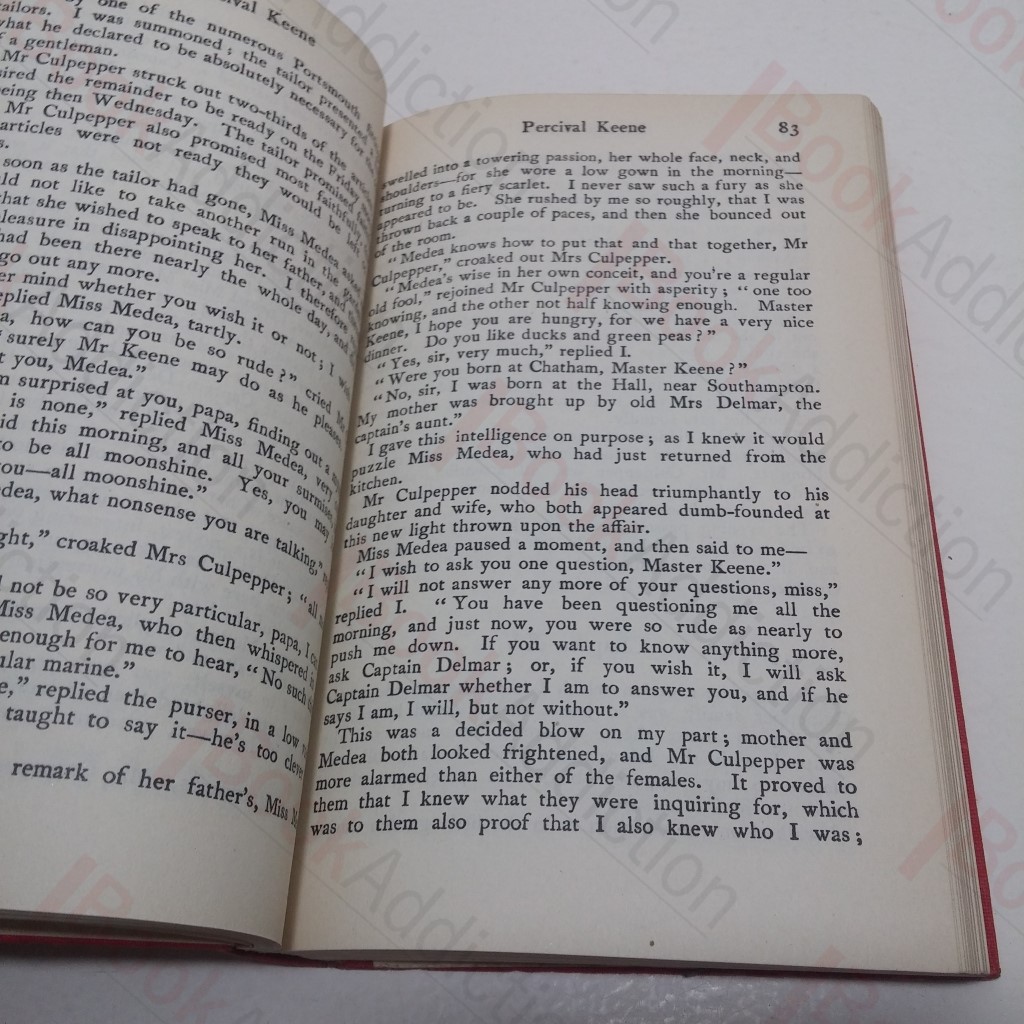 Percival Keene
by one of the numerous Portsmouth
tailors. I was summoned; the tailor presented
what he declared to be absolutely necessary for the
of a gentleman.
Mr Culpepper struck out two-thirds of the
the remainder to be ready on the
being then Wednesday. The tailor promised
Mr Culpepper also promised most faithfully
articles were not ready they would be left
soon as the tailor had gone, Miss Medea asked
not like to take another run in the
that she wished to speak to her father, and
pleasure in disappointing her. I therefore
had been there nearly the whole day, and
go out any more.
mind whether you wish it or not; I
replied Miss Medea, tartly.
how can you be so rude?" cried
surely Mr Keene may do as he
you, Medea."
surprised at you, papa, finding out a
is none," replied Miss Medea, very
this morning, and all your
to be all moonshine. Yes, you may
you—all moonshine."
what nonsense you are talking,"
croaked Mrs Culpepper; "all
not be so very particular, papa, I
Miss Medea, who then whispered
enough for me to hear, "No such
marine."
replied the purser, in a low
taught to say it—he's too clever
remark of her father's, Miss
Percival Keene 83
swelled into a towering passion, her whole face, neck, and
shoulders—for she wore a low gown in the morning—
turning to a fiery scarlet. I never saw such a fury as she
appeared to be. She rushed by me so roughly, that I was
thrown back a couple of paces, and then she bounced out
of the room.
"Medea knows how to put that and that together, Mr
Culpepper," croaked out Mrs Culpepper.
"Medea's wise in her own conceit, and you're a regular
old fool," rejoined Mr Culpepper with asperity; "one too
knowing, and the other not half knowing enough. Master
Keene, I hope you are hungry, for we have a very nice
dinner. Do you like ducks and green peas?"
"Yes, sir, very much," replied I.
"Were you born at Chatham, Master Keene?"
"No, sir, I was born at the Hall, near Southampton.
My mother was brought up by old Mrs Delmar, the
captain's aunt."
I gave this intelligence on purpose; as I knew it would
puzzle Miss Medea, who had just returned from the
kitchen.
Mr Culpepper nodded his head triumphantly to his
daughter and wife, who both appeared dumb-founded at
this new light thrown upon the affair.
Miss Medea paused a moment, and then said to me—
"I wish to ask you one question, Master Keene."
"I will not answer any more of your questions, miss,"
replied I. "You have been questioning me all the
morning, and just now, you were so rude as nearly to
push me down. If you want to know anything more,
ask Captain Delmar; or, if you wish it, I will ask
Captain Delmar whether I am to answer you, and if he
says I am, I will, but not without."
This was a decided blow on my part; mother and
Medea both looked frightened, and Mr Culpepper was
more alarmed than either of the females. It proved to
them that I knew what they were inquiring for, which
was to them also proof that I also knew who I was;
BookAddiction